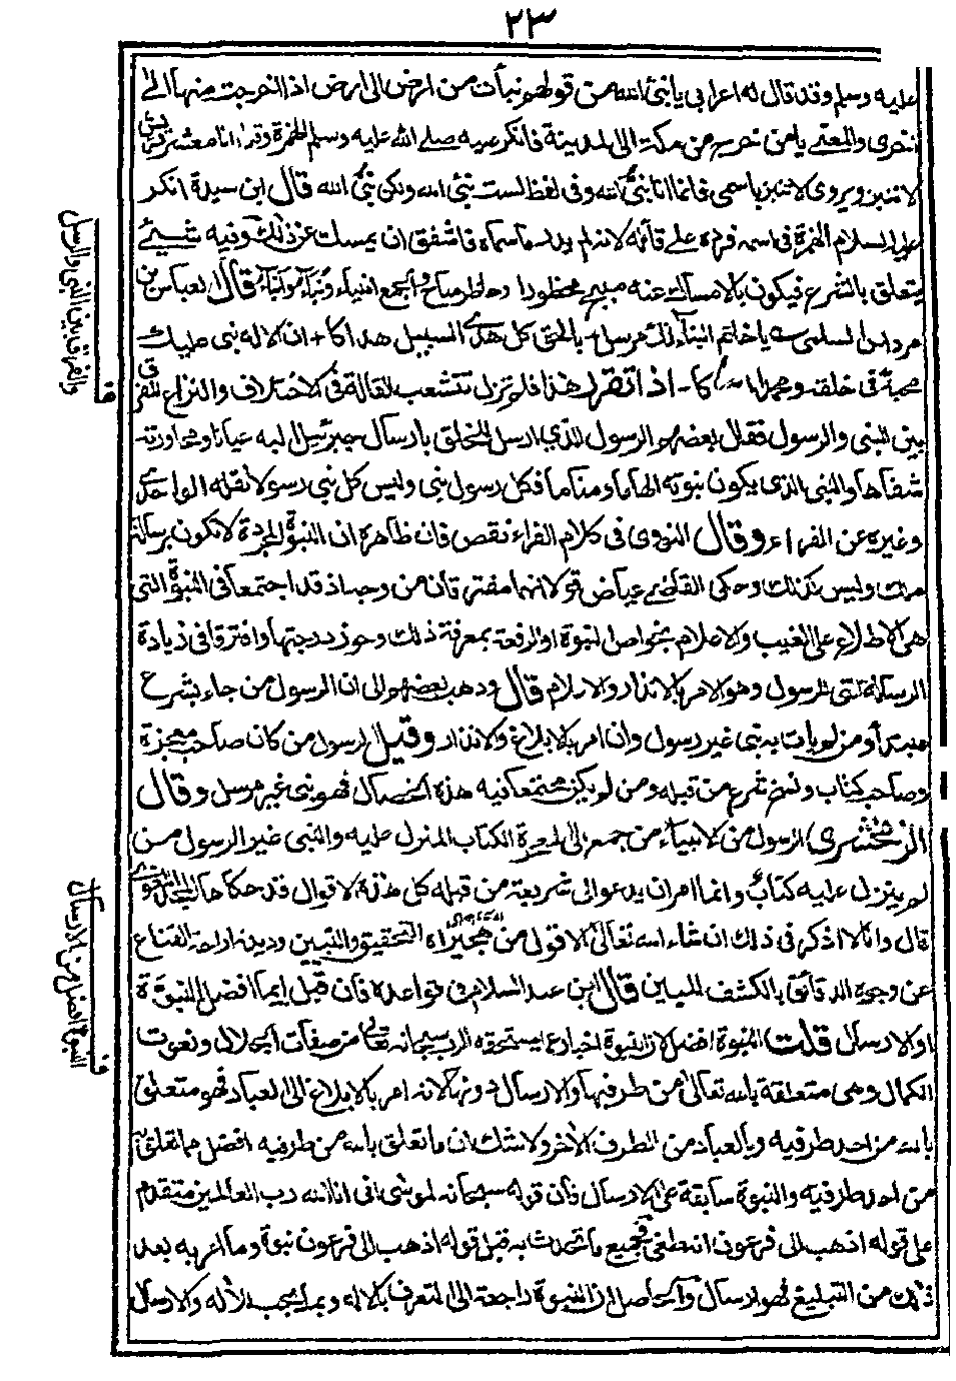 ٢٣
عليه وسلم وقد قال له اعرابي يا نبئ الله من قولهم نبأت من ارض الى ارض اذا خرجت منها الى
اخرى والمعنى يا من خرج من مكة الى المدينة فانكر عليه صلے الله عليه وسلم الهمزة وقال انا معشر قريش
لا ننبز ويروى لا تنبز باسمى فانما انا نبى الله وفى لفظ لست بنبئ الله ولكن نبى الله قال ابن سيدة انكر
عليه السلام الهمزة فى اسمه فرده علے قائله لانه لم يدر ما سماه فاشفق ان يمسك عن ذلك وفيه شيئ
يتعلق بالشرع فيكون بالامساك عنه مبيح محظور او حاظر مباح والجمع انبياء ونباء وانباء قال العباس بن
مرداس السلمى يا خاتم النباء انك مرسل بالحق كل هدى السبيل هداكا ان الاله بنى عليك
محبة فى خلقه ومحمدا سماكا اذا تقرر هذا فلم تزل تتشعب المقالة فى الاختلاف والنزاع فى الفرق
بين النبى والرسول فقال بعضهم الرسول الذى ارسل الى الخلق بارسال جبرئيل اليه عيانا ومحاورته
شفاها والنبى الذى يكون نبوته الهاما ومناما فكل رسول نبى وليس كل نبى رسولا نقله الواحدے
وغيره عن الفراء وقال النووى فى كلام الفراء نقص فان ظاهره ان النبوة المجردة لا تكون برسالة
ملك وليس كذلك وحكى القاضے عياض قولا انهما مفترقان من وجه اذ قد اجتمعا فى النبوة التى
هى الاطلاع على الغيب والاعلام بخواص النبوة او الرفعة بمعرفة ذلك وحوز درجتها وافترقا فى زيادة
الرسالة التى للرسول وهو الامر بالانذار والاعلام قال وذهب بعضهم الى ان الرسول من جاء بشرع
مبتدأ ومن لم يات به نبى غير رسول وان امر بالابلاغ والانذار وقيل الرسول من كان صاحب معجزة
وصاحب كتاب ونسخ شرع من قبله ومن لم يكن مجتمعا فيه هذه الخصال فهو نبى غير مرسل وقال
الزمخشرى الرسول من الانبياء من جمع الى المعجزة الكتاب المنزل عليه والنبى غير الرسول من
لم ينزل عليه كتاب وانما امر ان يدعو الى شريعة من قبله كل هذه الاقوال قد حكاها
قال وانا لا اذكر فى ذلك ان شاء الله تعالى الا قولى من التحقيق والتبيين ودينه اراحة القناع
عن وجوه الدقائق بالكشف المبين قال ابن عبد السلام فى قواعده فان قيل ايما افضل النبوة
او الارسال قلت النبوة افضل لان النبوة اخبار عما يستحقه الرب سبحانه تعالى من صفات الجلال ونعوت
الكمال وهى متعلقة بالله تعالى من طرفيها والارسال دونها لانه امر بالابلاغ الى العباد فهو متعلق
بالله من احد طرفيه وبالعباد من الطرف الآخر ولا شك ان ما تعلق بالله من طرفيه افضل مما تعلق به
من احد طرفيه والنبوة سابقة على الارسال فان قوله سبحانه لموسٰى انى انا الله رب العالمين متقدم
على قوله اذهب الى فرعون انه طغى فجميع ما تحدث به قبل قوله اذهب الى فرعون نبوة وما امر به بعد
ذلك من التبليغ فهو ارسال والحاصل ان النبوة راجعة الى التعرف بالاله وبما يجب للاله والارسال
ف والفرق بين النبى والرسل
ف النبوة افضل من الارسال